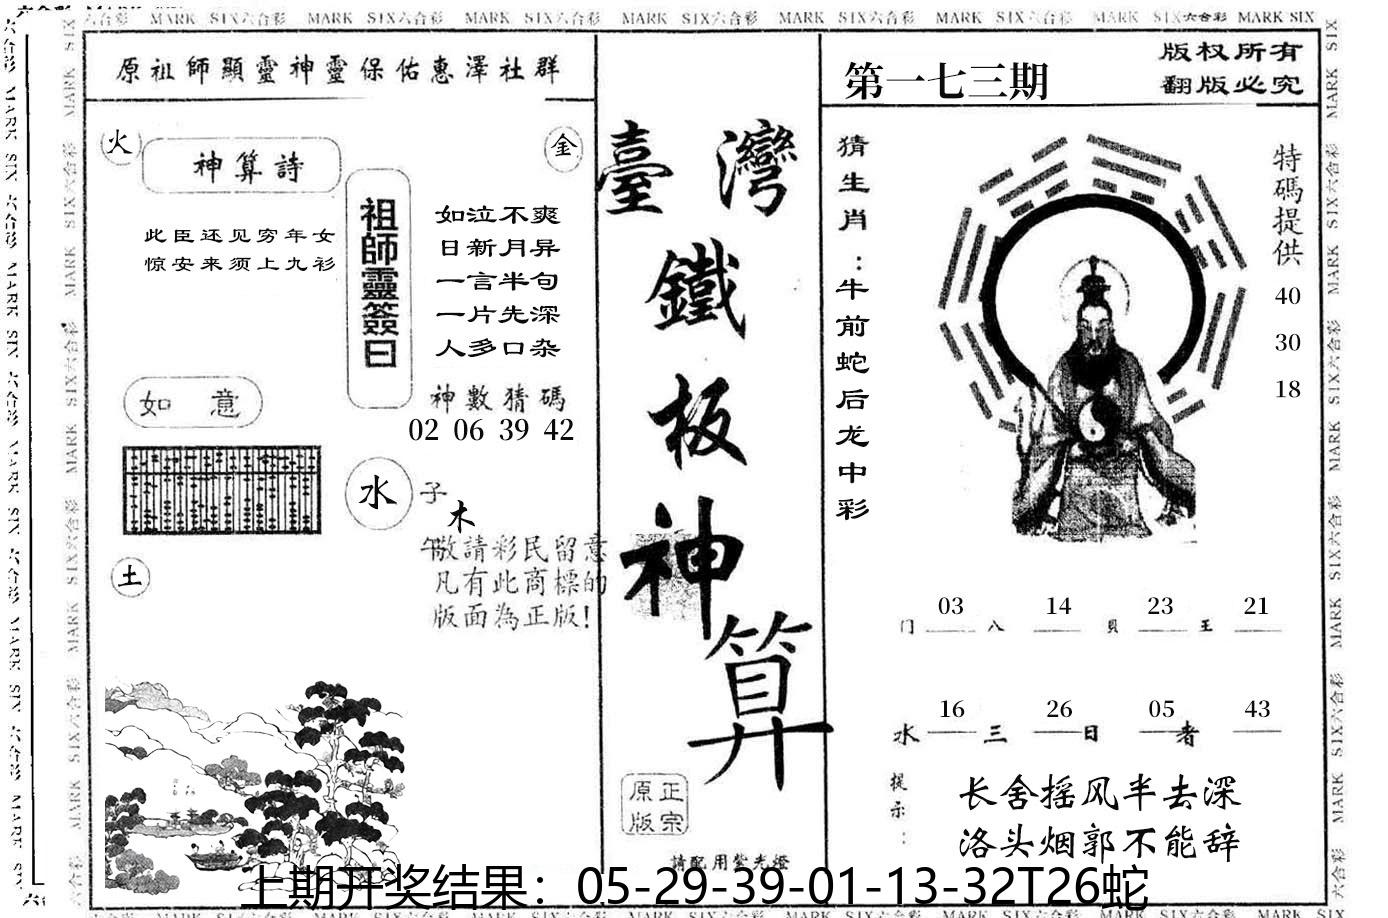 MARK SIX六合彩 MARK SIX六合彩 MARK SIX六合彩 MARK SIX六合彩 MARK SIX六合彩 MARK SIX六合彩 MARK SIX六合彩 MARK SIX
原祖師顯靈神靈保佑惠澤社群
火
金
神算詩
此臣还见穷年女
惊安来须上九衫
祖師靈簽曰
如泣不爽
日新月异
一言半句
一片先深
人多口杂
神數猜碼
02 06 39 42
如意
水
子
木
午
土
敬請彩民留意
凡有此商標的
版面為正版!
臺灣
鐵
板
神
算
正宗
原版
請配用紫光燈
第一七三期
版权所有
翻版必究
猜生肖:牛前蛇后龙中彩
特碼提供
40
30
18
03 14 23 21
门 八 貝 王
16 26 05 43
水 三 日 者
提示:
长舍摇风半去深
洛头烟郭不能辞
上期开奖结果：05-29-39-01-13-32T26蛇